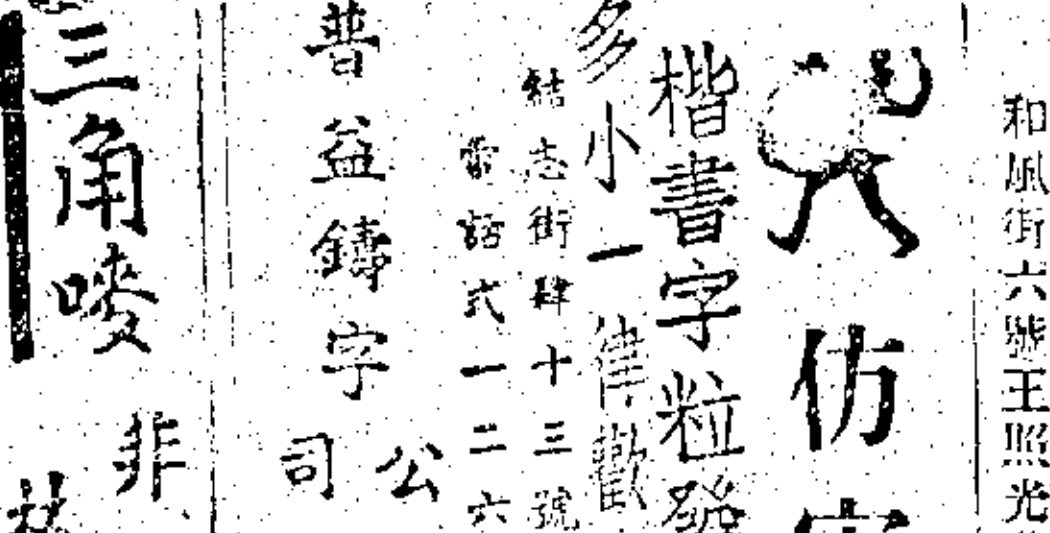 和風街六號王照光
仿
楷書字粒發
多小一律歡
結志街肆十三號
電話式一二六
普益鑄字
公司
三角嘜
非